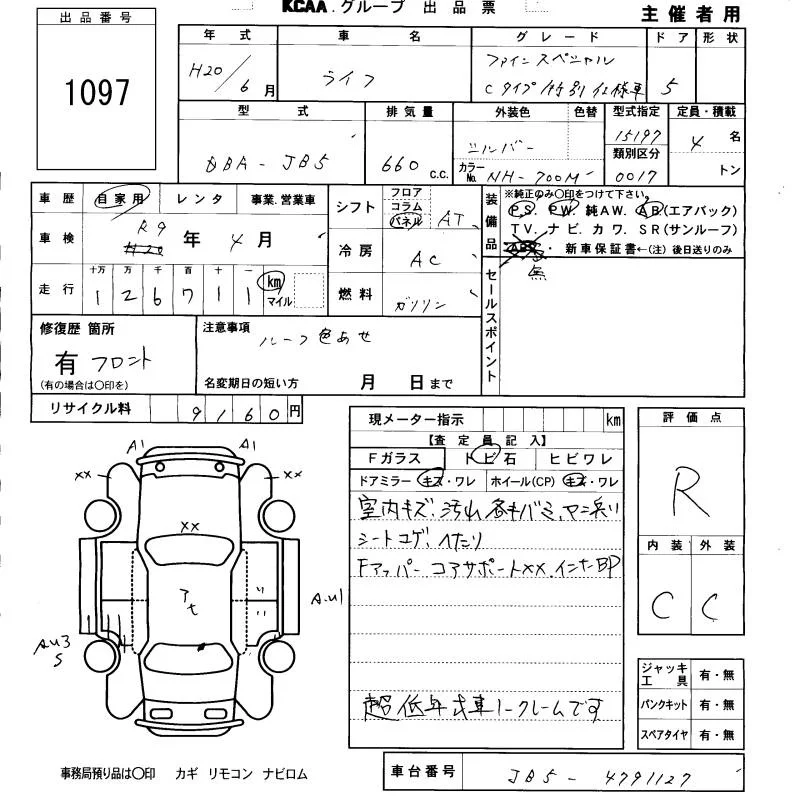 KCAA.グループ 出品票
主催者用
出品番号
1097
年式 車名 グレード ドア 形状
H20/6月 ライフ ファインスペシャル
Cタイプ特別仕様車 5
型式 排気量 外装色 色替 型式指定 定員・積載
DBA-JB5 660 c.c. シルバー 15197 4名
カラーNo. NH-700M 類別区分 0017 トン
車歴 自家用 レンタ 事業.営業車
車検 R9 H20 年 4月
走行 十万 万 千 百 十 一
1 2 6 7 1 1 km マイル
シフト フロア コラム パネル AT
冷房 AC
燃料 ガソリン
装備品 ※純正のみ〇印をつけて下さい。
PS. PW. 純AW. AB(エアバック)
TV. ナビ. カワ. SR(サンルーフ)
・ 新車保証書←(注) 後日送りのみ
無
セールスポイント
修復歴 箇所
有 フロント
(有の場合は〇印を)
注意事項
ルーフ色あせ
名変期日の短い方 月 日まで
リサイクル料 9160円
現メーター指示 km
【査定員記入】
Fガラス トビ石 ヒビワレ
ドアミラー キズ・ワレ ホイール(CP) キズ・ワレ
室内キズ、汚れ
シートコゲ、ヘたり
Fアッパー コアサポートXX.インナー
超低年式車ノークレームです
評価点
R
内装 外装
C C
ジャッキ工具 有・無
パンクキット 有・無
スペアタイヤ 有・無
A1 A1
XX XX
XX
アせ
AU3
S
AU1
事務局預り品は〇印 カギ リモコン ナビロム
車台番号 JB5-4791127